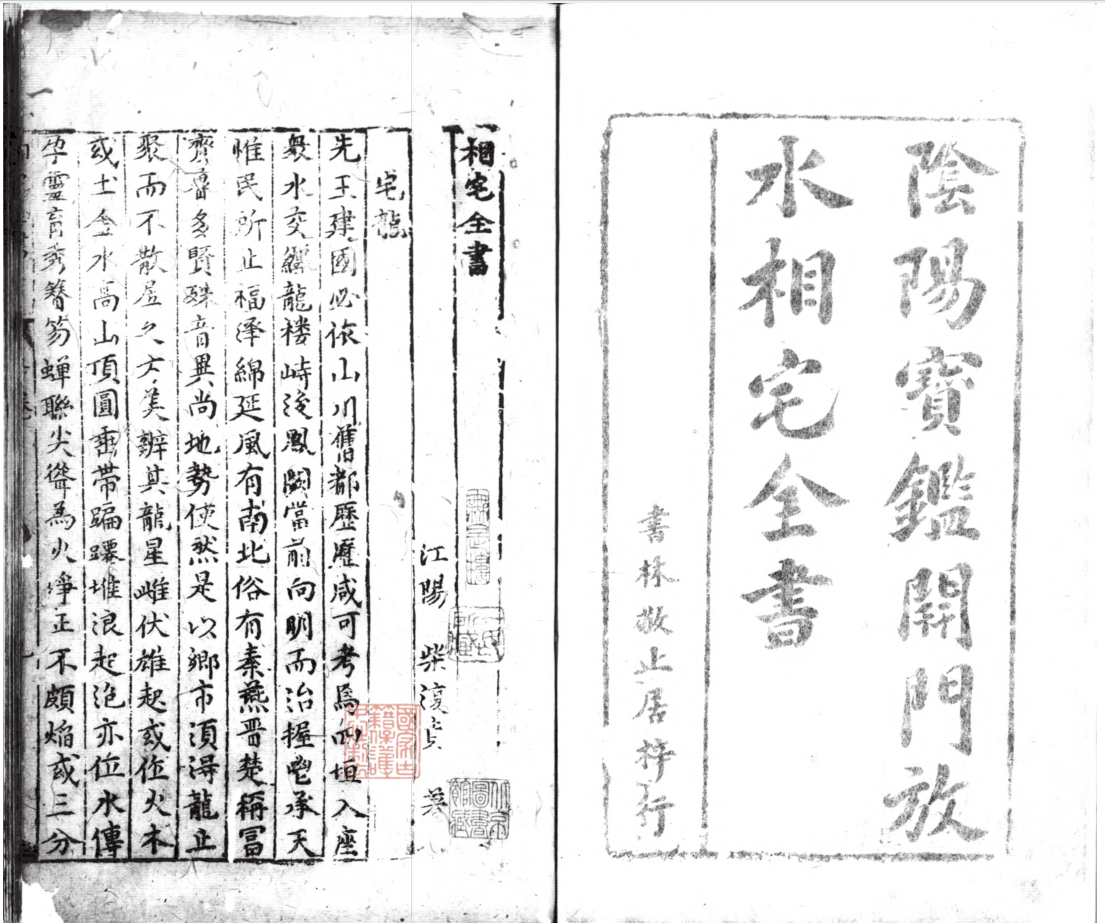 陰陽寳鑑開門放
水相宅全書
書林敬止居梓行
相宅全書
江陽 柴復貞
宅龍
先王建國必依山川舊都歷歷咸可考爲四垣入座
衆水交纏龍楼峙後鳳闕當前向明而治握乾承天
惟民所止福澤綿延風有南北俗有秦燕晋楚稱富
齊魯多賢殊音異尚地勢使然是以鄉市湏淂龍止
聚而不散居之方美辨其龍星雌伏雄起或位火木
或土金水高山頂圓垂帶蹁躚堆浪起泡亦位水傳
孕靈育秀簪笏蟬聯尖聳為火淨正不頗焰或三分